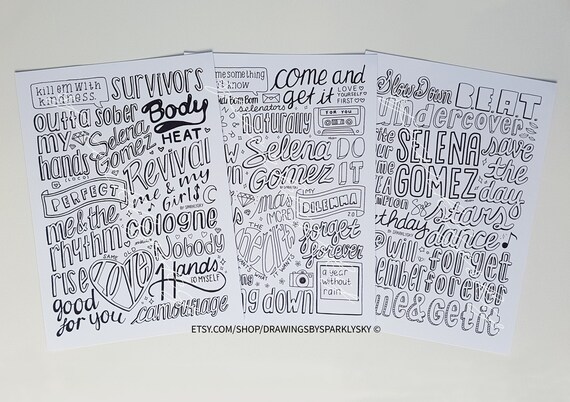 kill em with
kindness
SURVIVORS
outta
my
hands
sober
Selena
Gomez
Body
HEAT
Revival
me & my
girls
PERFECT
me & the
rhythm
cologne
Nobody
rise
SAME OLD
LOVE
Hands
TO MYSELF
good
for you
camouflage
me something
know
Bom Bom
selenators
come and
get it
LOVE
YOURSELF
FIRST
FOR YOU
naturally
Selena
Gomez
DO
IT
MY
DILEMMA
mas
MORE
the
HEART
forget
forever
a year
without
rain
down
Slow Down
BEAT
Undercover
SELENA
GOMEZ
save
the
day
stars
dance
win
forget
forever
me & Get it
ETSY.COM/SHOP/DRAWINGSBYSPARKLYSKY ©